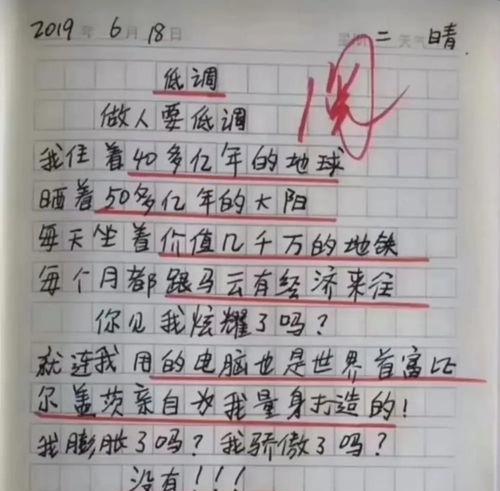 2019年6月18日 星期二 天气晴
低调
做人要低调
我住着40多亿年的地球
晒着50多亿年的大阳
每天坐着价值几千万的地铁
每个月都跟马云有经济来往
你见我炫耀了吗？
就连我用的电脑也是世界首富比
尔盖茨亲自为我量身打造的！
我膨胀了吗？我骄傲了吗？
没有！！！